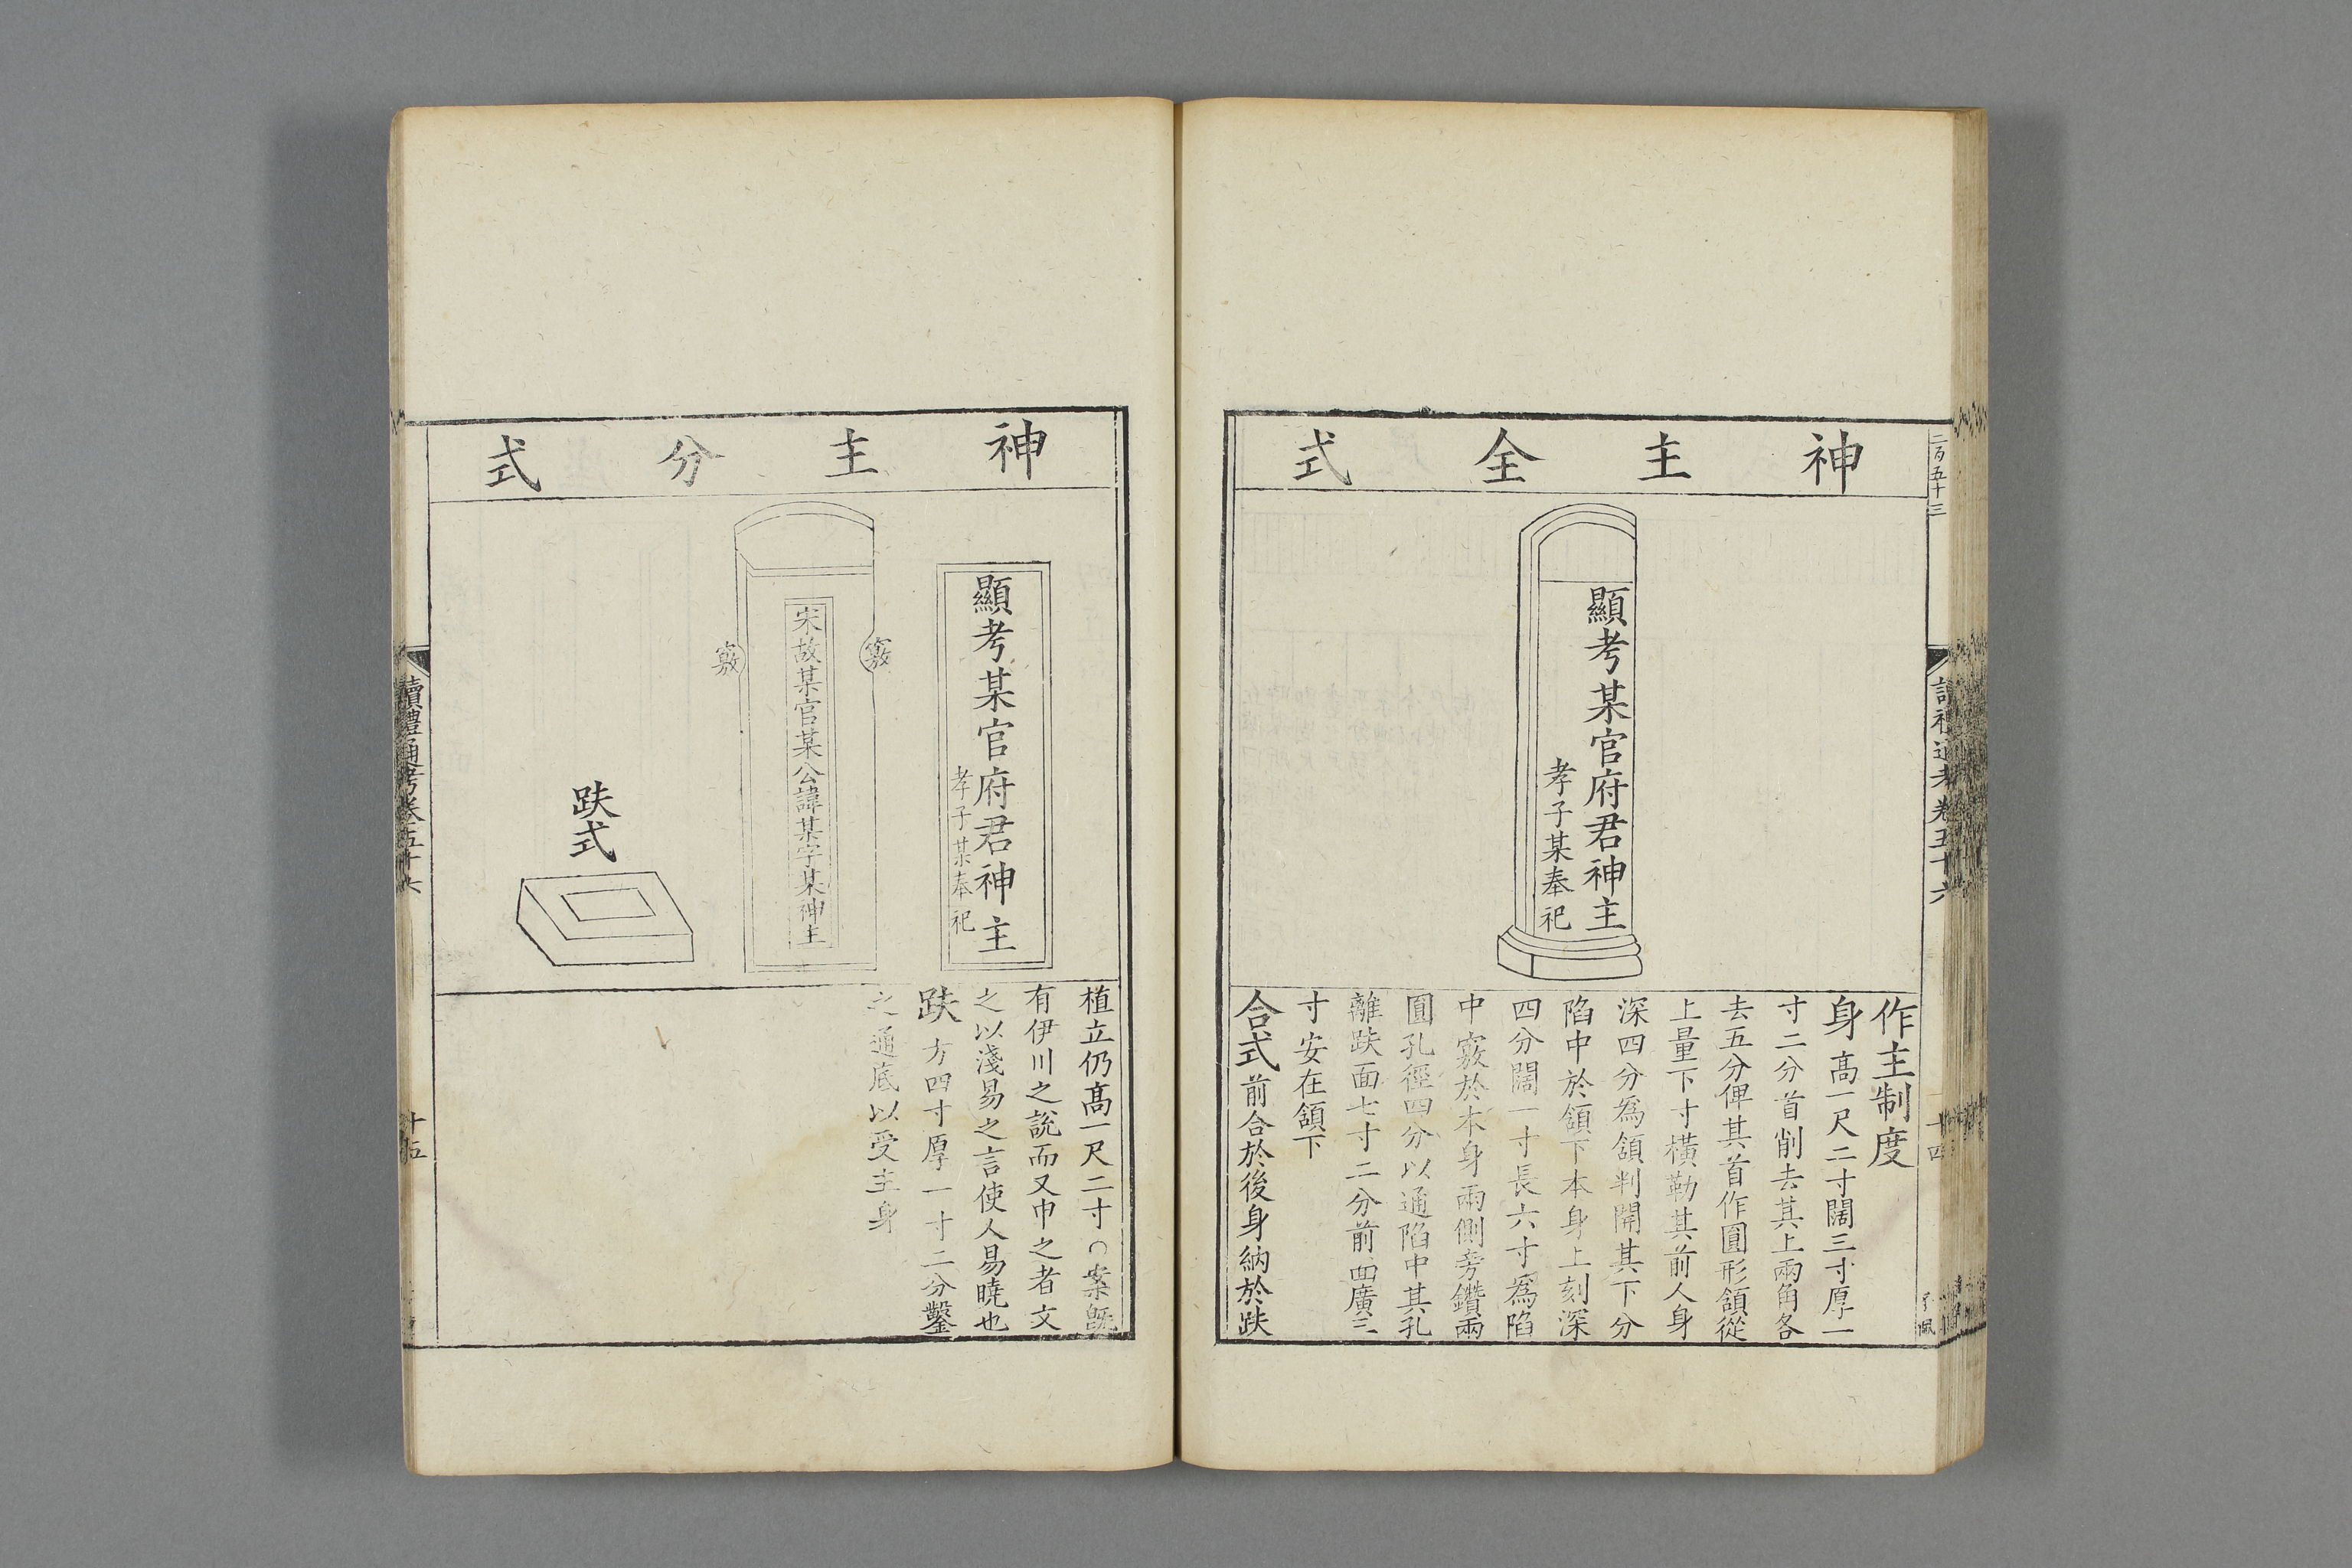 神主全式
顯考某官府君神主
孝子某奉祀
作主制度
身高一尺二寸闊三寸厚一
寸二分首削去其上兩角各
去五分俾其首作圓形頷從
上量下寸橫勒其前人身
深四分爲頷判開其下分
陷中於頷下本身上刻深
四分闊一寸長六寸爲陷
中竅於本身兩側旁鑽兩
圓孔徑四分以通陷中其孔
離趺面七寸二分前面廣三
寸安在頷下
合式前合於後身納於趺
二百五十三
讀禮通考卷五十六
十四
神主分式
顯考某官府君神主
孝子某奉祀
竅
宋故某官某公諱某字某神主
竅
趺式
植立仍高一尺二寸〇案旣
有伊川之說而又申之者文
之以淺易之言使人易曉也
趺方四寸厚一寸二分鑿
之通底以受主身
讀禮通考卷五十六
十五